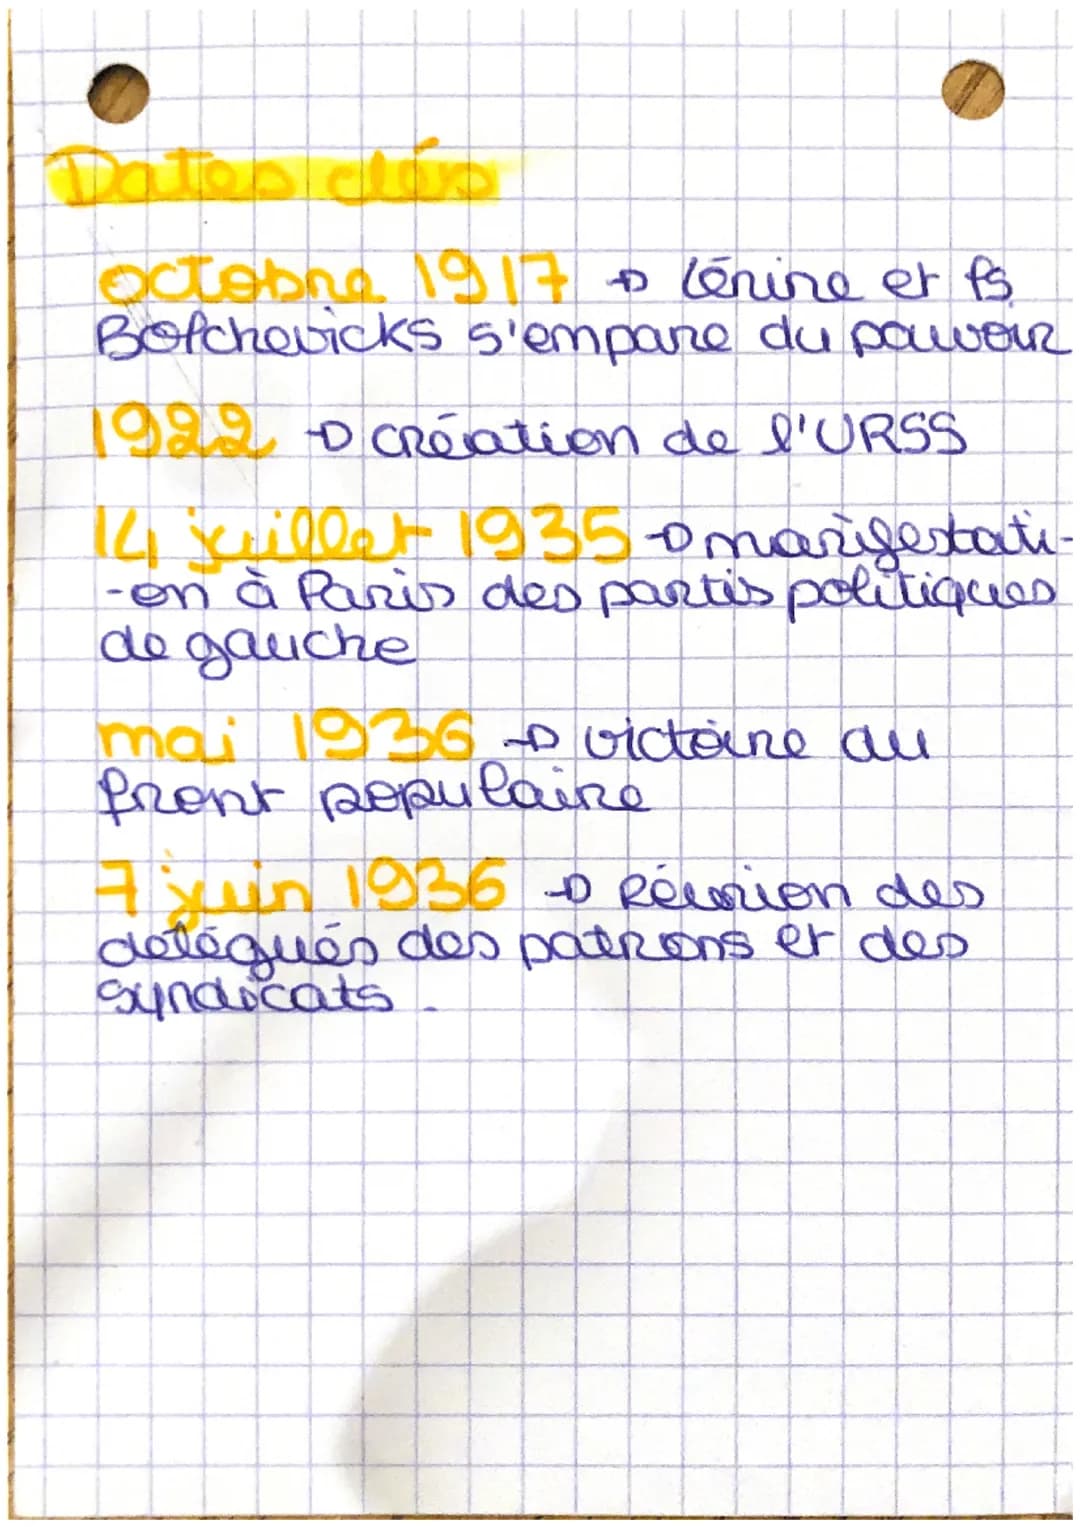 Dates clés
octobre 1917 → Lénine et ls
Bolchevicks s'empare du pouvoir
1922 → création de l'URSS
14 juillet 1935 → manifestati-
-on à Paris des partis politiques
de gauche
mai 1936 → victoire du
front populaire
7 juin 1936 → Réunion des
délégués des patrons et des
syndicats.